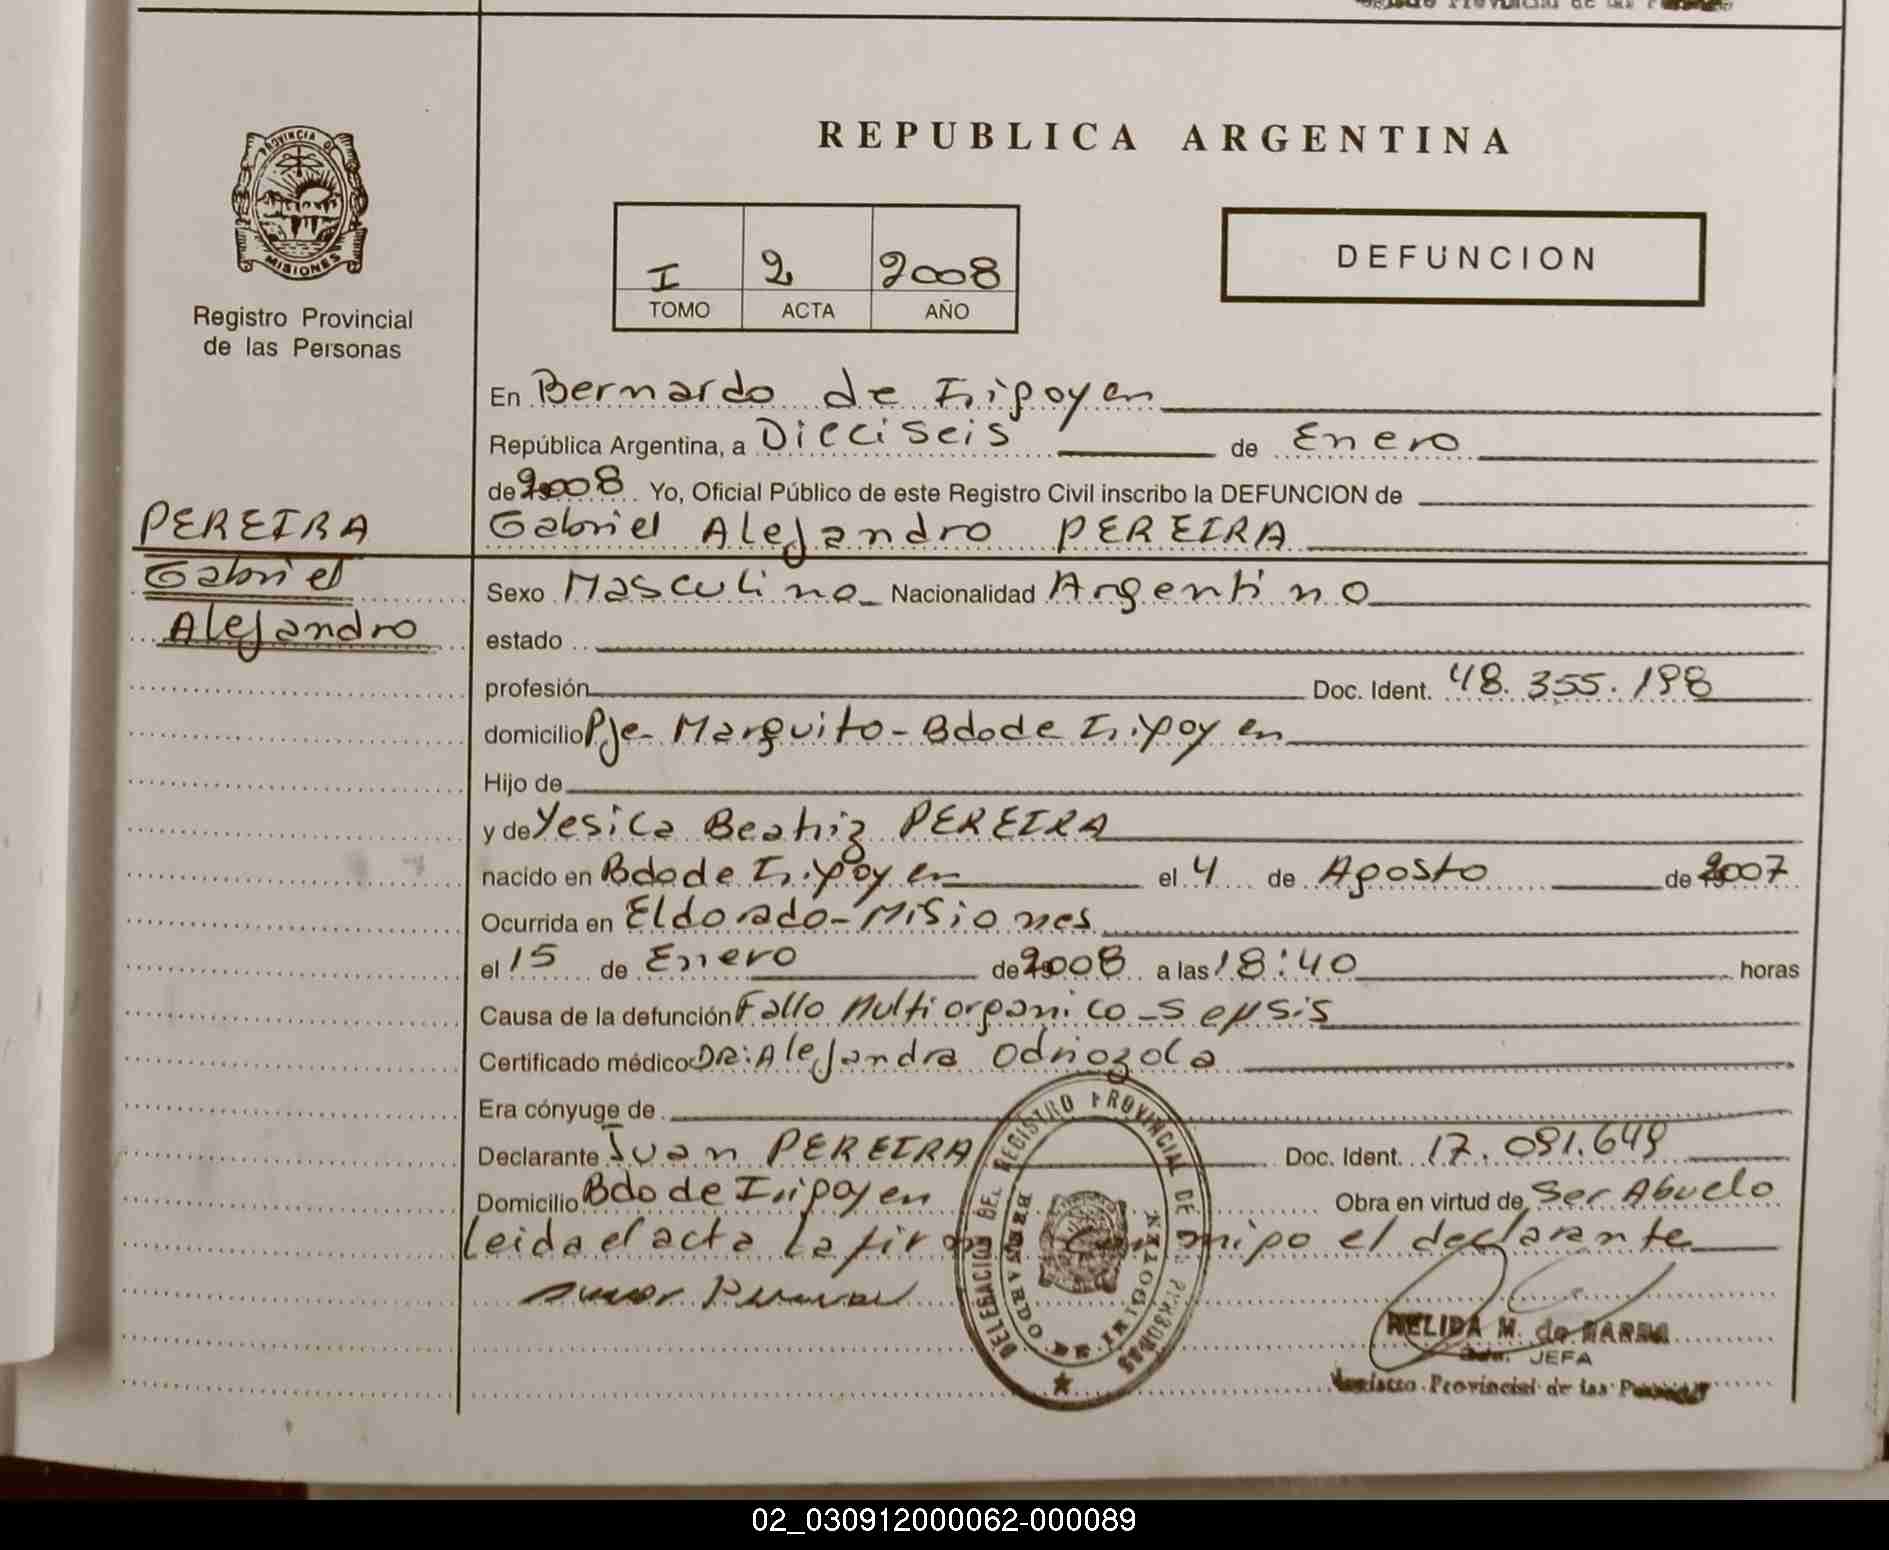 PROVINCIA DE
MISIONES
Registro Provincial
de las Personas
REPUBLICA ARGENTINA
I 2 2008
TOMO ACTA AÑO
DEFUNCION
En Bernardo de Irigoyen
República Argentina, a Dieciseis de Enero
de 2008 Yo, Oficial Público de este Registro Civil inscribo la DEFUNCION de
PEREIRA
Gabriel Alejandro PEREIRA
Gabriel
Alejandro
Sexo Masculino Nacionalidad Argentino
estado
profesión Doc. Ident. 48.355.198
domicilio Pje Marquito - Bdo de Irigoyen
Hijo de
y de Yesica Beatriz PEREIRA
nacido en Bdo de Irigoyen el 4 de Agosto de 2007
Ocurrida en Eldorado - Misiones
el 15 de Enero de 2008 a las 18:40 horas
Causa de la defunción Fallo Multiorganico - Sepsis
Certificado médico DRa: Alejandra Odriozola
Era cónyuge de
Declarante Juan PEREIRA Doc. Ident. 17.091.649
Domicilio Bdo de Irigoyen Obra en virtud de Ser Abuelo
Leida el acta la firma conmigo el declarante
DELEGACION DEL REGISTRO PROVINCIAL DE LAS PERSONAS
BERNARDO DE IRIGOYEN
NELIDA M. de
JEFA
Registro Provincial de las Personas
02_030912000062-000089